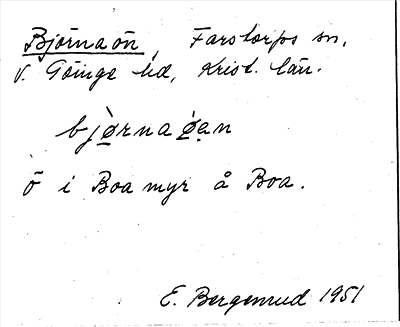 Björnaön, Farstorps sn.
V. Göinge hd, Krist. län.
bjø̀rnaø̀ạn
ö i Boamyr å Boa.
E. Bergenrud 1951